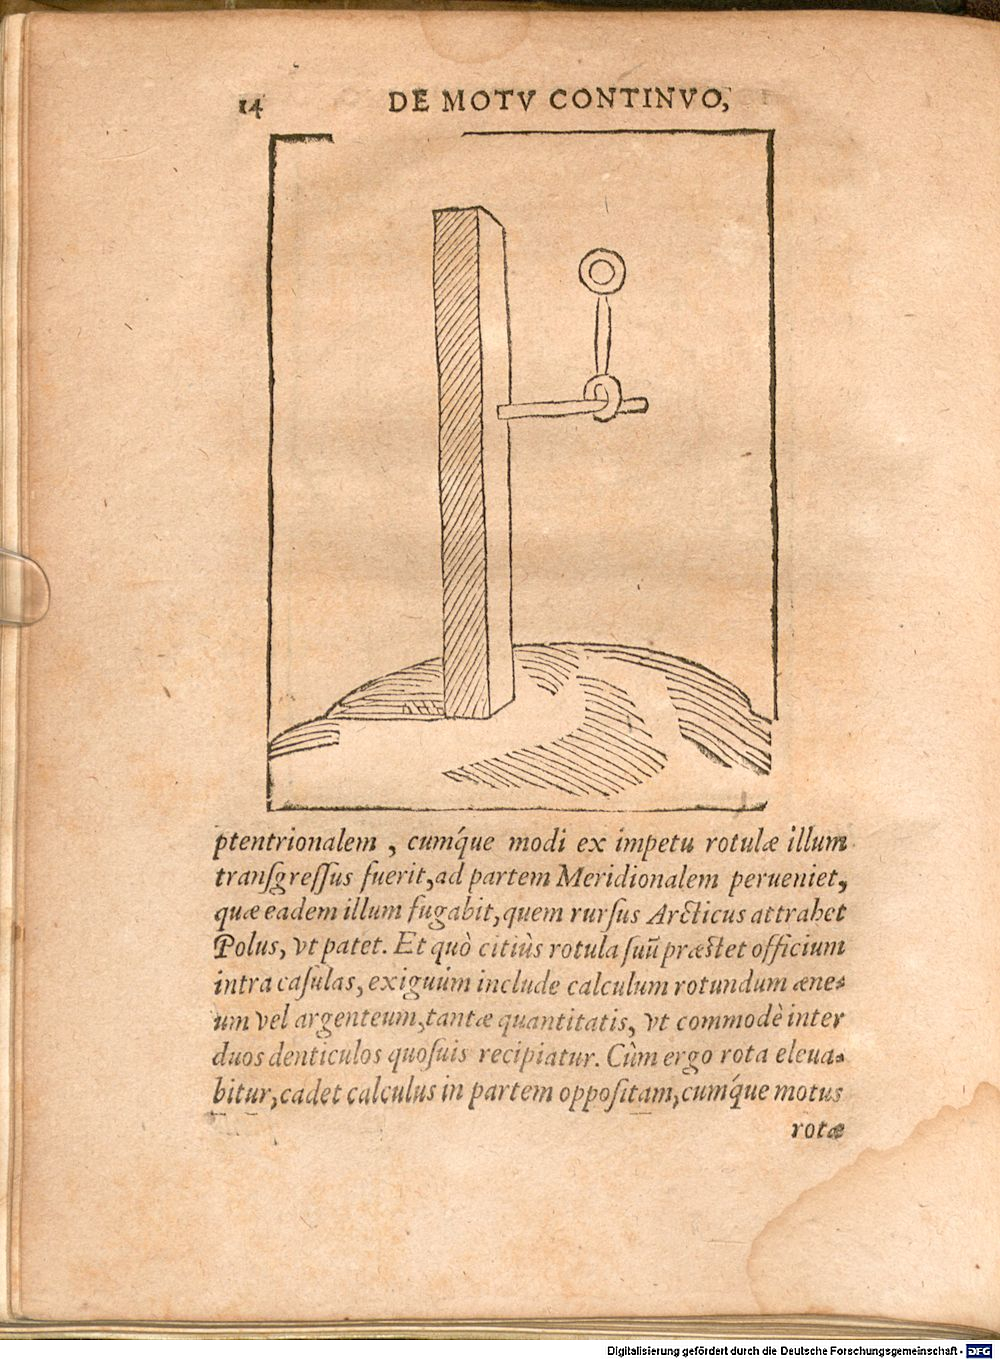 14 DE MOTV CONTINVO,
ptentrionalem , cumq́ue modi ex impetu rotulæ illum
transgressus fuerit, ad partem Meridionalem perueniet,
quæ eadem illum fugabit, quem rursus Arcticus attrahet
Polus, vt patet. Et quò citiùs rotula suũ præstet officium
intra casulas, exiguum include calculum rotundum æne-
um vel argenteum, tantæ quantitatis, vt commodè inter
duos denticulos quosuis recipiatur. Cùm ergo rota eleua-
bitur, cadet calculus in partem oppositam, cumq́ue motus
rotæ
Digitalisierung gefördert durch die Deutsche Forschungsgemeinschaft - DFG